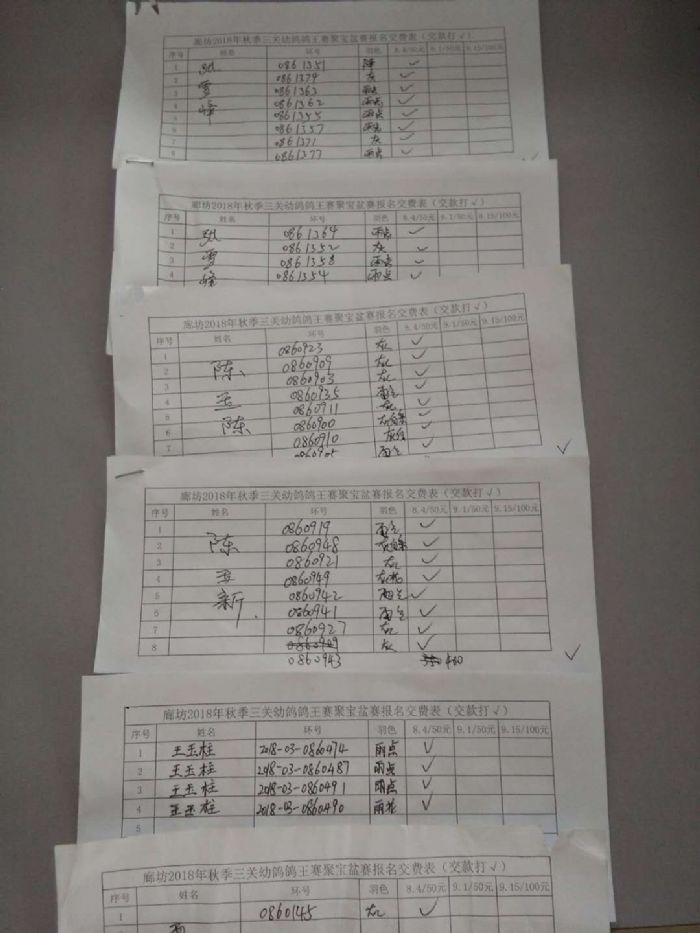 廊坊2018年秋季三关幼鸽鸽王赛聚宝盆赛报名交费表(交款打√)
序号 姓名 环号 羽色 8.4/50元 9.1/50元 9.15/100元
1 0861351 √
2 0861374 灰 √
3 雪 0861363 雨点 √
4 0861362 雨点 √
5 峰 0861355 雨点 √
6 0861357 √
7 0861371 灰 √
8 0861377 雨点 √
√
廊坊2018年秋季三关幼鸽鸽王赛聚宝盆赛报名交费表(交款打√)
序号 姓名 环号 羽色 8.4/50元 9.1/50元 9.15/100元
1 0861364 雨点 √
2 0861352 灰 √
3 雪 0861358 雨点 √
4 峰 0861354 雨点 √
廊坊2018年秋季三关幼鸽鸽王赛聚宝盆赛报名交费表(交款打√)
序号 姓名 环号 羽色 8.4/50元 9.1/50元 9.15/100元
1 0860923 灰 √
2 陈 0860909 灰 √
3 0860903 灰 √
4 玉 0860935 √
5 0860911 灰 √
6 陈 0860900 √
7 0860910 √
0860905 √
√
廊坊2018年秋季三关幼鸽鸽王赛聚宝盆赛报名交费表(交款打√)
序号 姓名 环号 羽色 8.4/50元 9.1/50元 9.15/100元
1 0860919 √
2 陈 0860948 √
3 0860921 灰 √
4 玉 0860949 √
5 新 0860942 √
6 0860941 √
7 0860927 灰 √
8 灰 √
0860943 400
√
廊坊2018年秋季三关幼鸽鸽王赛聚宝盆赛报名交费表(交款打√)
序号 姓名 环号 羽色 8.4/50元 9.1/50元 9.15/100元
1 王玉柱 2018-03-0860474 雨点 √
2 王玉柱 2018-03-0860487 雨点 √
3 王玉柱 2018-03-0860491 雨点 √
4 王玉柱 2018-03-0860490 雨花 √
5
廊坊2018年秋季三关幼鸽鸽王赛聚宝盆赛报名交费表(交款打√)
序号 姓名 环号 羽色 8.4/50元 9.1/50元 9.15/100元
1 0860145 灰 √